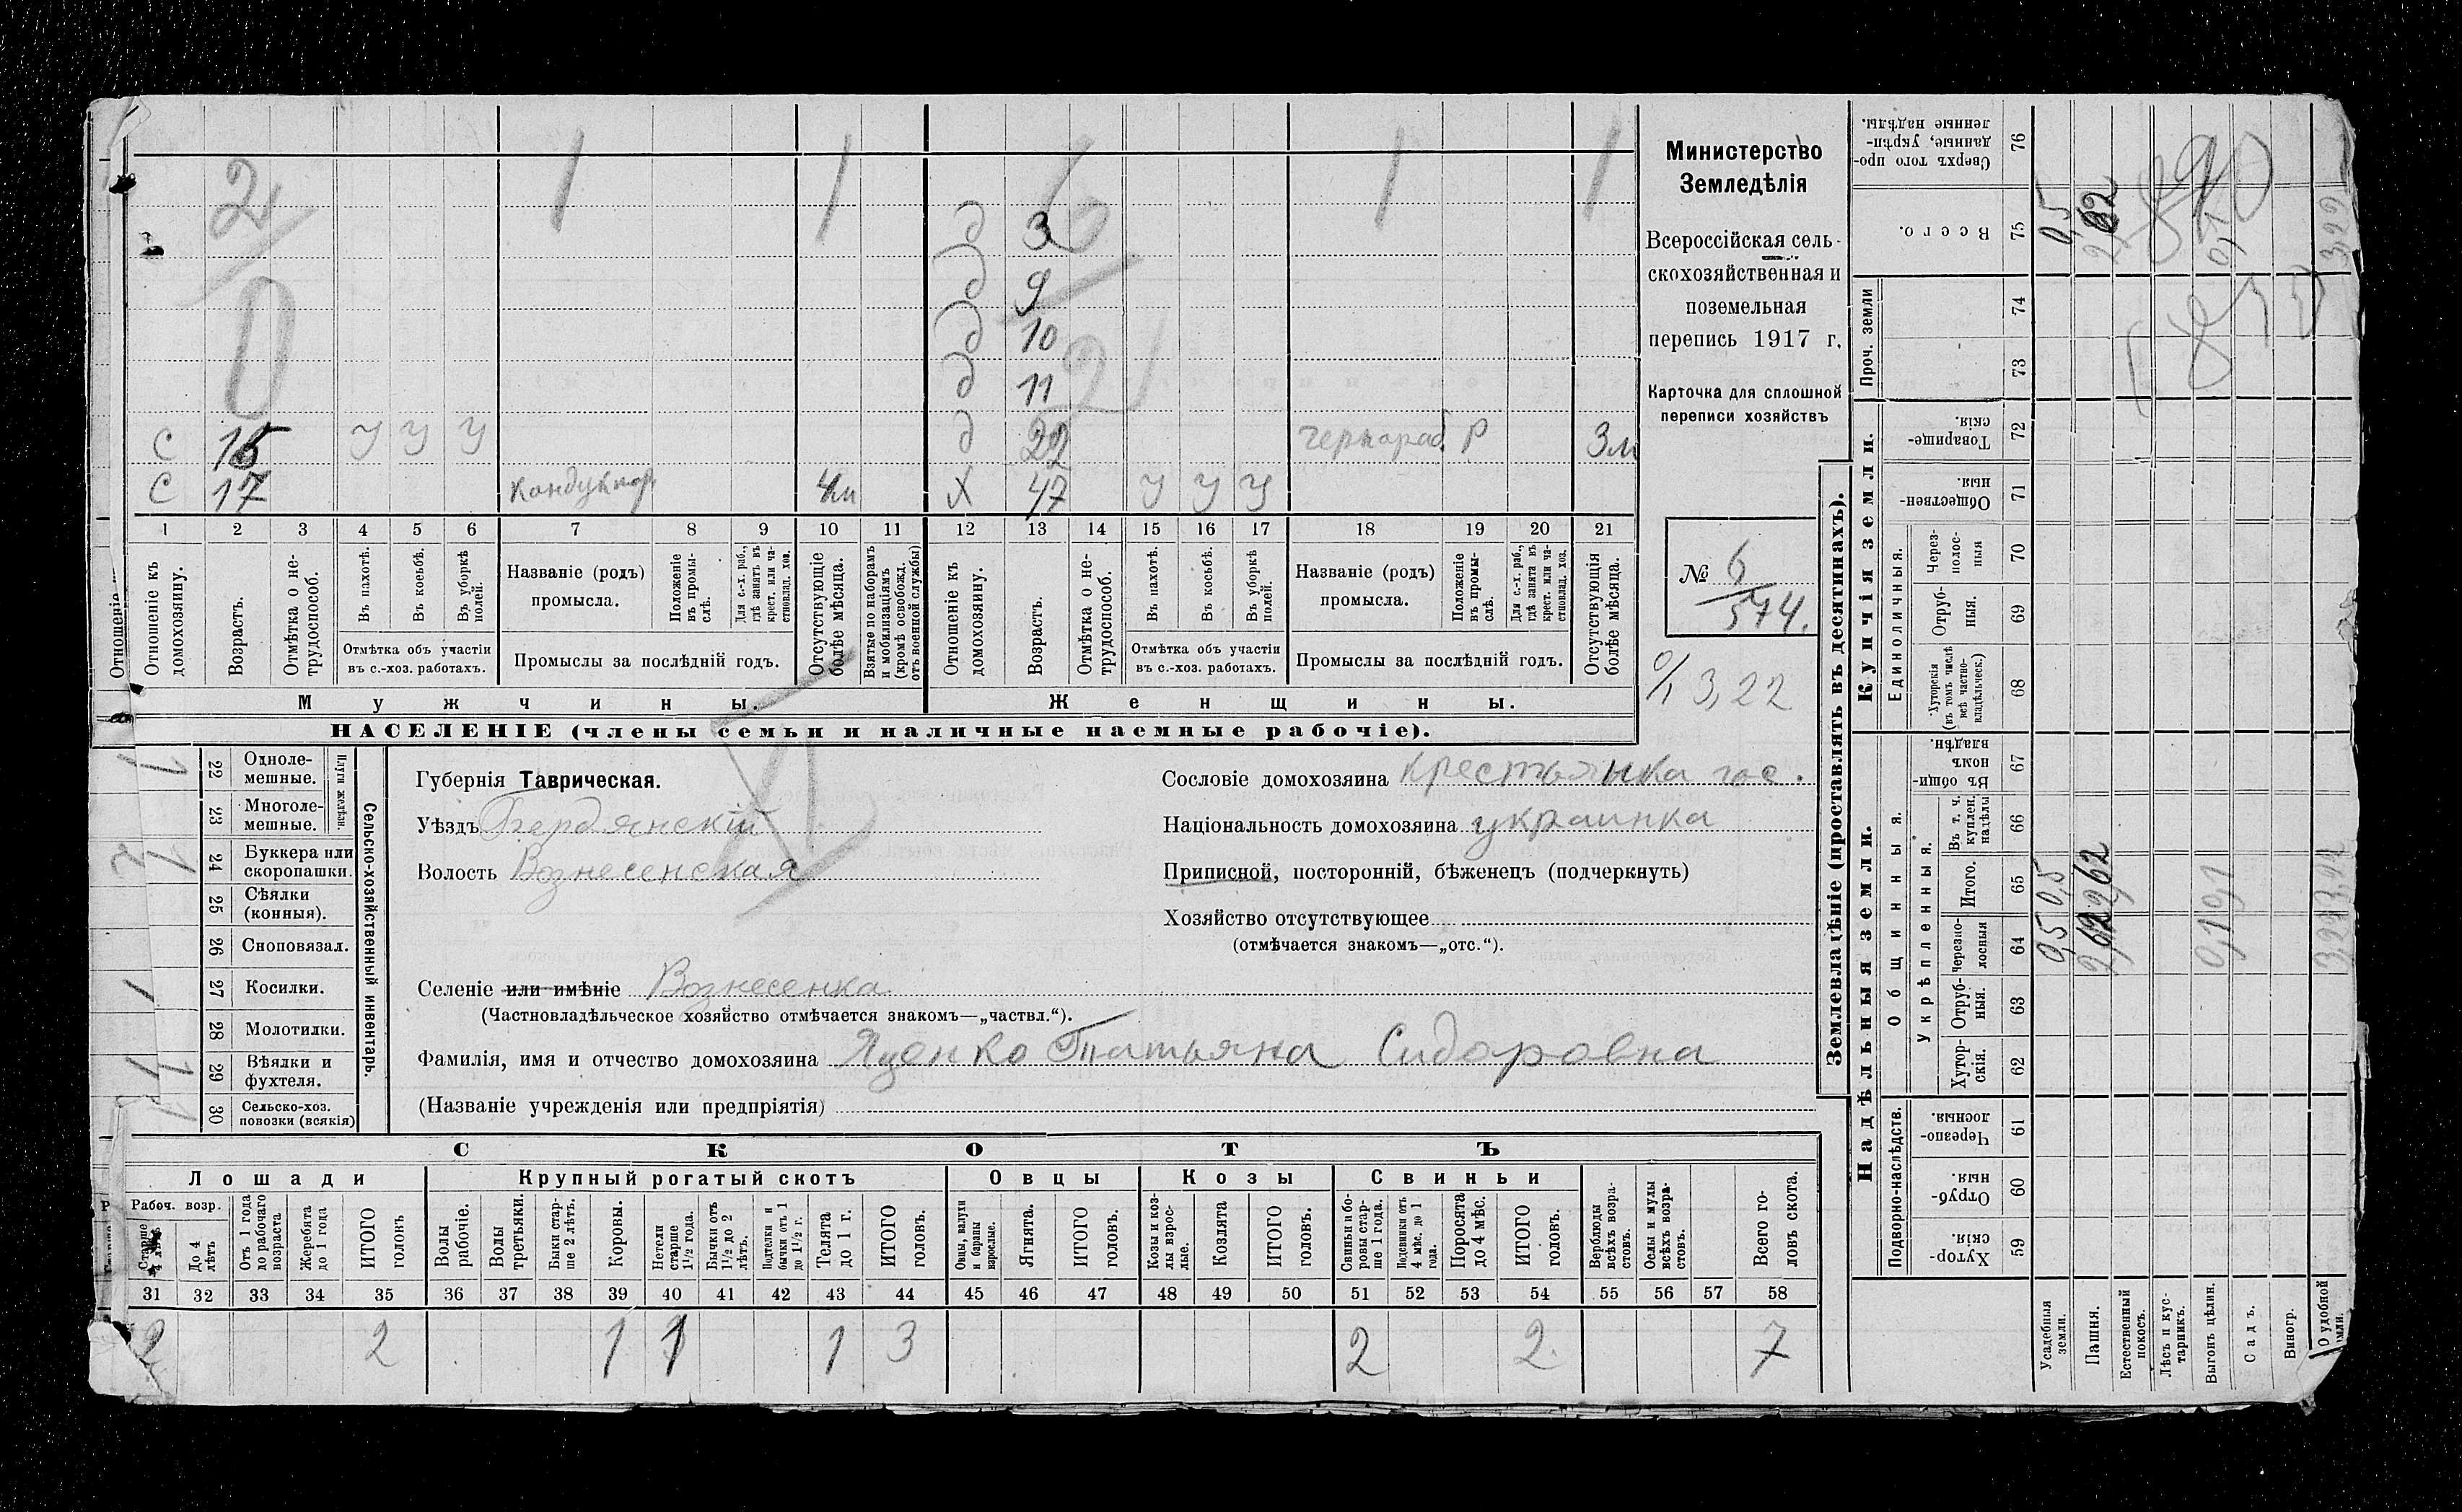 2 1 1 6 1 1
д 3
д 9
д 10
0 д 11 2
С 15 У У У д 22 чернораб. Р 3м
С 17 Кондуктор 4м Х 47 У У У
1 2 3 4 5 6 7 8 9 10 11 12 13 14 15 16 17 18 19 20 21
Отношеніе къ домохозяину.
Возрастъ.
Отмѣтка о нетрудоспособ.
Въ пахотѣ.
Въ косьбѣ.
Въ уборкѣ полей.
Отмѣтка объ участіи
въ с.-хоз. работахъ.
Названіе (родъ)
промысла.
Положеніе въ промыслѣ.
Для с.-х. раб., гдѣ занятъ въ крест. или частновлад. хоз.
Промыслы за послѣдній годъ.
Отсутствующіе болѣе мѣсяца.
Взятые по наборамъ и мобилизаціямъ (кромѣ освобожд. отъ военной службы)
Отношеніе къ домохозяину.
Возрастъ.
Отмѣтка о нетрудоспособ.
Въ пахотѣ.
Въ косьбѣ.
Въ уборкѣ полей.
Отмѣтка объ участіи
въ с.-хоз. работахъ.
Названіе (родъ)
промысла.
Положеніе въ промыслѣ.
Для с.-х. раб., гдѣ занята въ крест. или частновлад. хоз.
Промыслы за послѣдній годъ.
Отсутствующія болѣе мѣсяца.
Мужчины. Женщины.
НАСЕЛЕНІЕ (члены семьи и наличные наемные рабочіе).
Министерство
Земледѣлія
Всероссійская сель-
скохозяйственная и
поземельная
перепись 1917 г.
Карточка для сплошной
переписи хозяйствъ
№ 6
574.
3,22
Отношеніе
22 Одноле-
мешные.
23 Многоле-
мешные.
Плуги желѣзн.
24 Буккера или
скоропашки.
25 Сѣялки
(конныя).
26 Сноповязал.
27 Косилки.
28 Молотилки.
29 Вѣялки и
фухтеля.
30 Сельско-хоз.
повозки (всякія)
Сельско-хозяйственный инвентарь.
Губернія Таврическая.
Уѣздъ Бердянскій
Волость Вознесенская
Сословіе домохозяина крестьянка гос.
Національность домохозяина украинка
Приписной, посторонній, бѣженецъ (подчеркнуть)
Хозяйство отсутствующее
(отмѣчается знакомъ—„отс.“).
Селеніе или имѣніе Вознесенка
(Частновладѣльческое хозяйство отмѣчается знакомъ—„частвл.“).
Фамилія, имя и отчество домохозяина Яценко Татьяна Сидоровна
(Названіе учрежденія или предпріятія)
СКОТЪ
Лошади Крупный рогатый скотъ Овцы Козы Свиньи
Рабоч. возр.
Старше 4 лѣтъ
До 4 лѣтъ
Отъ 1 года до рабочаго возраста
Жеребята до 1 года
ИТОГО головъ
Волы рабочіе.
Волы третьяки.
Быки старше 2 лѣтъ.
Коровы.
Нетели старше 1½ года.
Бычки отъ 1½ до 2 лѣтъ.
Подтелки и бычки отъ 1 до 1½ г.
Телята до 1 г.
ИТОГО головъ.
Овцы, валухи и бараны взрослые.
Ягнята.
ИТОГО головъ.
Козы и козлы взрослые.
Козлята
ИТОГО головъ.
Свиньи и боровы старше 1 года.
Подсвинки отъ 4 мѣс. до 1 года.
Поросята до 4 мѣс.
ИТОГО головъ.
Верблюды всѣхъ возрастовъ.
Ослы и мулы всѣхъ возрастовъ.
Всего головъ скота.
31 32 33 34 35 36 37 38 39 40 41 42 43 44 45 46 47 48 49 50 51 52 53 54 55 56 57 58
2 2 1 1 1 3 2 2 7
Землевладѣніе (проставлять въ десятинахъ).
Купчія земли.
Надѣльныя земли.
Сверхъ того проданные, укрѣпленные надѣлы. 76
Всего. 75
Проч. земли 74 73
Товарищескія. 72
Общественныя. 71
Единоличныя.
Черезполосныя 70
Отрубныя. 69
Хуторскія (въ томъ числѣ всѣ частновладѣльческ.) 68
Общинныя.
Въ общинномъ владѣн. 67
Укрѣпленныя.
Въ т. ч. куплен. надѣлы 66
Итого. 65
Черезполосныя 64
Отрубныя. 63
Хуторскія. 62
Подворно-наслѣдств.
Черезполосныя. 61
Отрубныя. 60
Хуторскія. 59
Усадебныя земли. 0,5 0,5 0,5
Пашня. 2,62 2,62 2,62
Естественный покосъ.
Лѣсъ и кустарникъ.
Выгонъ цѣлин. 0,1
Садъ.
Виногр.
О удобной земли. 3,22 3,22